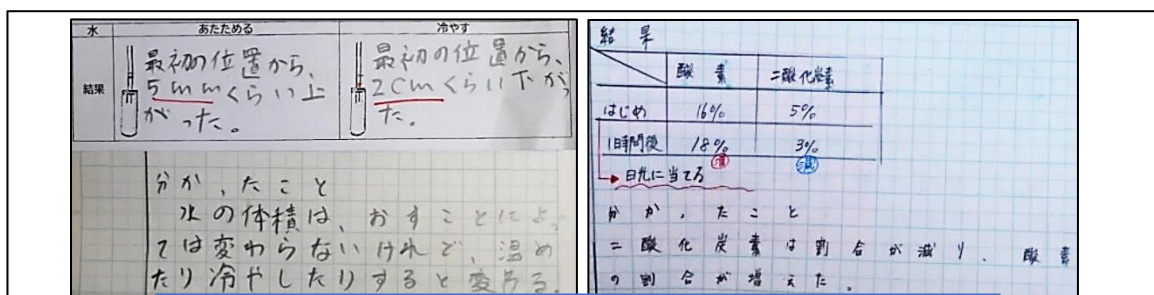 水 あたためる 冷やす
結果
最初の位置から、
5mmくらい上
がった。
最初の位置から、
2cmくらい下がっ
た。
分かったこと
水の体積は、おすことによっ
ては変わらないけれど、温め
たり冷やしたりすると変わる。
結果
酸素 二酸化炭素
はじめ 16% 5%
1時間後 18% 3%
増 減
日光に当てる
分かったこと
二酸化炭素は割合が減り、酸素
の割合が増えた。